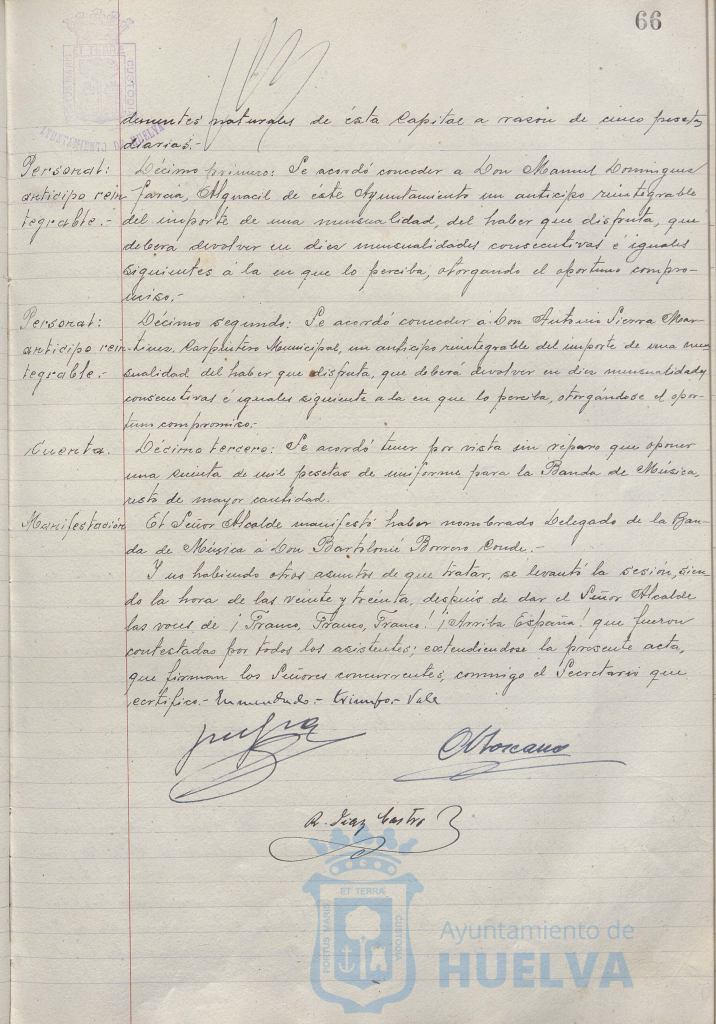 66
PORTUS MARIS ET TERRA CUSTODIA
AYUNTAMIENTO DE HUELVA
dementes naturales de ésta Capital a razón de cinco pesetas
diarias.-
Personal: Décimo primero: Se acordó conceder a Don Manuel Dominguez
anticipo rein- Garcia, Alguacil de éste Ayuntamiento un anticipo reintegrable
tegrable.- del importe de una mensualidad, del haber que disfruta, que
deberá devolver en diez mensualidades consecutivas é iguales
siguientes á la en que lo perciba, otorgando el oportuno compro-
miso.-
Personal: Décimo segundo: Se acordó conceder a Don Antonio Sierra Mar-
anticipo rein- tinez, Carpintero Municipal, un anticipo reintegrable del importe de una men
tegrable.- sualidad del haber que disfruta, que deberá devolver en diez mensualidades
consecutivas é iguales siguiente a la en que lo perciba, otorgándose el opor-
tuno compromiso.-
Cuenta. Décimo tercero: Se acordó tener por vista sin reparo que oponer
una cuenta de mil pesetas de uniforme para la Banda de Música,
resto de mayor cantidad.
Manifestación El Señor Alcalde manifestó haber nombrado Delegado de la Ban-
da de Música á Don Bartolomé Borrero Conde.-
Y no habiendo otros asuntos de que tratar, se levantó la sesión, sien-
do la hora de las veinte y treinta, después de dar el Señor Alcalde
las voces de ¡Franco, Franco, Franco! ¡Arriba España! que fueron
contestadas por todos los asistentes; extendiendose la presente acta,
que firman los Señores concurrentes, conmigo el Secretario que
certifico.- Enmendado.- triunfo.- Vale
R. Diaz Castro
ET TERRA
PORTUS MARIS
CUSTODIA
Ayuntamiento de
HUELVA